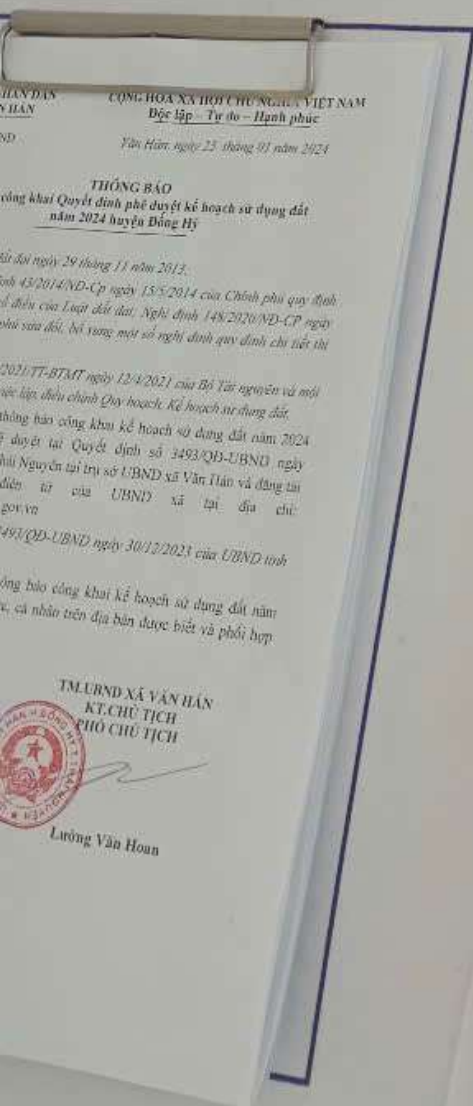 HÂN DÂN
CỘNG HÒA XÃ HỘI CHỦ NGHĨA VIỆT NAM
N HÁN
Độc lập – Tự do – Hạnh phúc
ND
Văn Hán, ngày 25 tháng 01 năm 2024
THÔNG BÁO
công khai Quyết định phê duyệt kế hoạch sử dụng đất
năm 2024 huyện Đồng Hỷ
đất đai ngày 29 tháng 11 năm 2013;
ịnh 43/2014/ND-Cp ngày 15/5/2014 của Chính phủ quy định
số điều của Luật đất đai; Nghị định 148/2020/NĐ-CP ngày
phủ sửa đổi, bổ xung một số nghị định quy định chi tiết thi
/2021/TT-BTMT ngày 12/4/2021 của Bộ Tài nguyên và môi
việc lập, điều chỉnh Quy hoạch, Kế hoạch sử dụng đất.
thông báo công khai kế hoạch sử dụng đất năm 2024
ê duyệt tại Quyết định số 3493/QĐ-UBND ngày
hái Nguyên tại trụ sở UBND xã Văn Hán và đăng tải
điện tử của UBND xã tại địa chỉ:
gov.vn
3493/QĐ-UBND ngày 30/12/2023 của UBND tỉnh
ông báo công khai kế hoạch sử dụng đất năm
c, cá nhân trên địa bàn được biết và phối hợp
TM.UBND XÃ VĂN HÁN
KT.CHỦ TỊCH
PHÓ CHỦ TỊCH
HÁN H.ĐỒNG HỶ T.THÁI NGUYÊN
Lường Văn Hoan